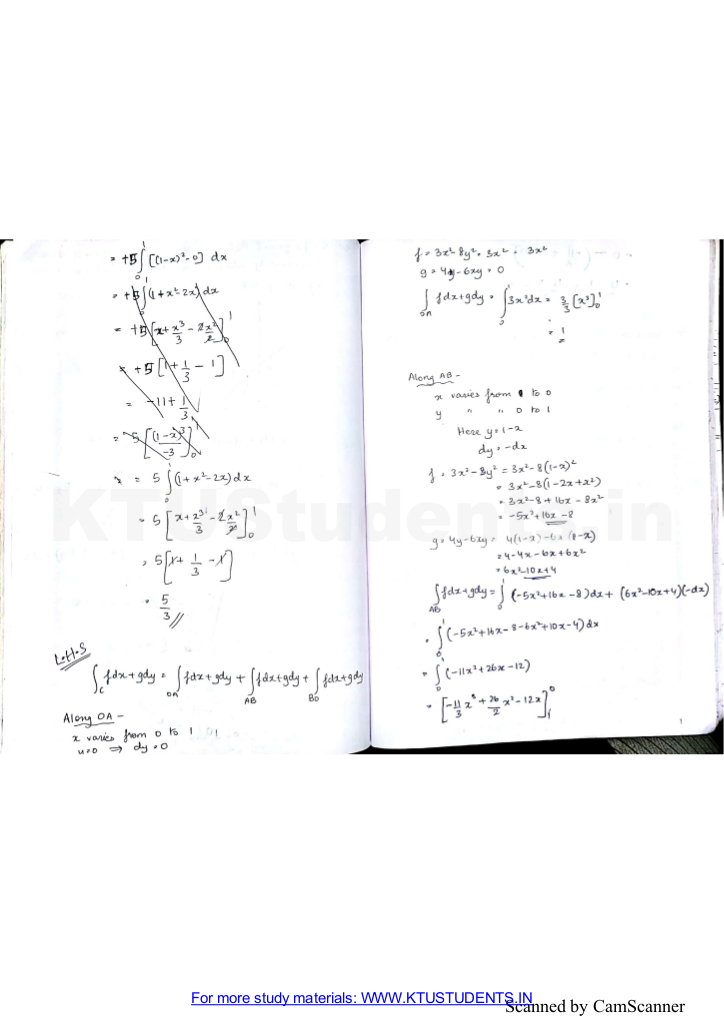 = +5∫₀¹ [(1-x)² - 0] dx
= +5∫₀¹ (1 + x² - 2x) dx
= +5[x + x³/3 - 2x²/2]₀¹
= +5[1 + 1/3 - 1]
= -11 + 1/3
= 5[(1-x)³/-3]₀¹
= 5∫₀¹ (1 + x² - 2x) dx
= 5[x + x³/3 - 2x²/2]₀¹
= 5[1 + 1/3 - 1]
= 5/3 //
L.H.S
∫_C fdx + gdy = ∫_OA fdx + gdy + ∫_AB fdx + gdy + ∫_BO fdx + gdy
Along OA -
x varies from 0 to 1
y=0 ⇒ dy = 0
f = 3x² - 8y² = 3x² = 3x²
g = 4y - 6xy = 0
∫_OA fdx + gdy = ∫₀¹ 3x² dx = 3/3 [x³]₀¹
= 1
Along AB -
x varies from 1 to 0
y " " 0 to 1
Here y = 1-x
dy = -dx
f = 3x² - 8y² = 3x² - 8(1-x)²
= 3x² - 8(1 - 2x + x²)
= 3x² - 8 + 16x - 8x²
= -5x² + 16x - 8
g = 4y - 6xy = 4(1-x) - 6x(1-x)
= 4 - 4x - 6x + 6x²
= 6x² - 10x + 4
∫_AB fdx + gdy = ∫₁⁰ (-5x² + 16x - 8) dx + (6x² - 10x + 4)(-dx)
= ∫₀¹ (-5x² + 16x - 8 - 6x² + 10x - 4) dx
= ∫₀¹ (-11x² + 26x - 12)
= [-11/3 x³ + 26/2 x² - 12x]₁⁰
KTUStudents.in
For more study materials: WWW.KTUSTUDENTS.IN
Scanned by CamScanner